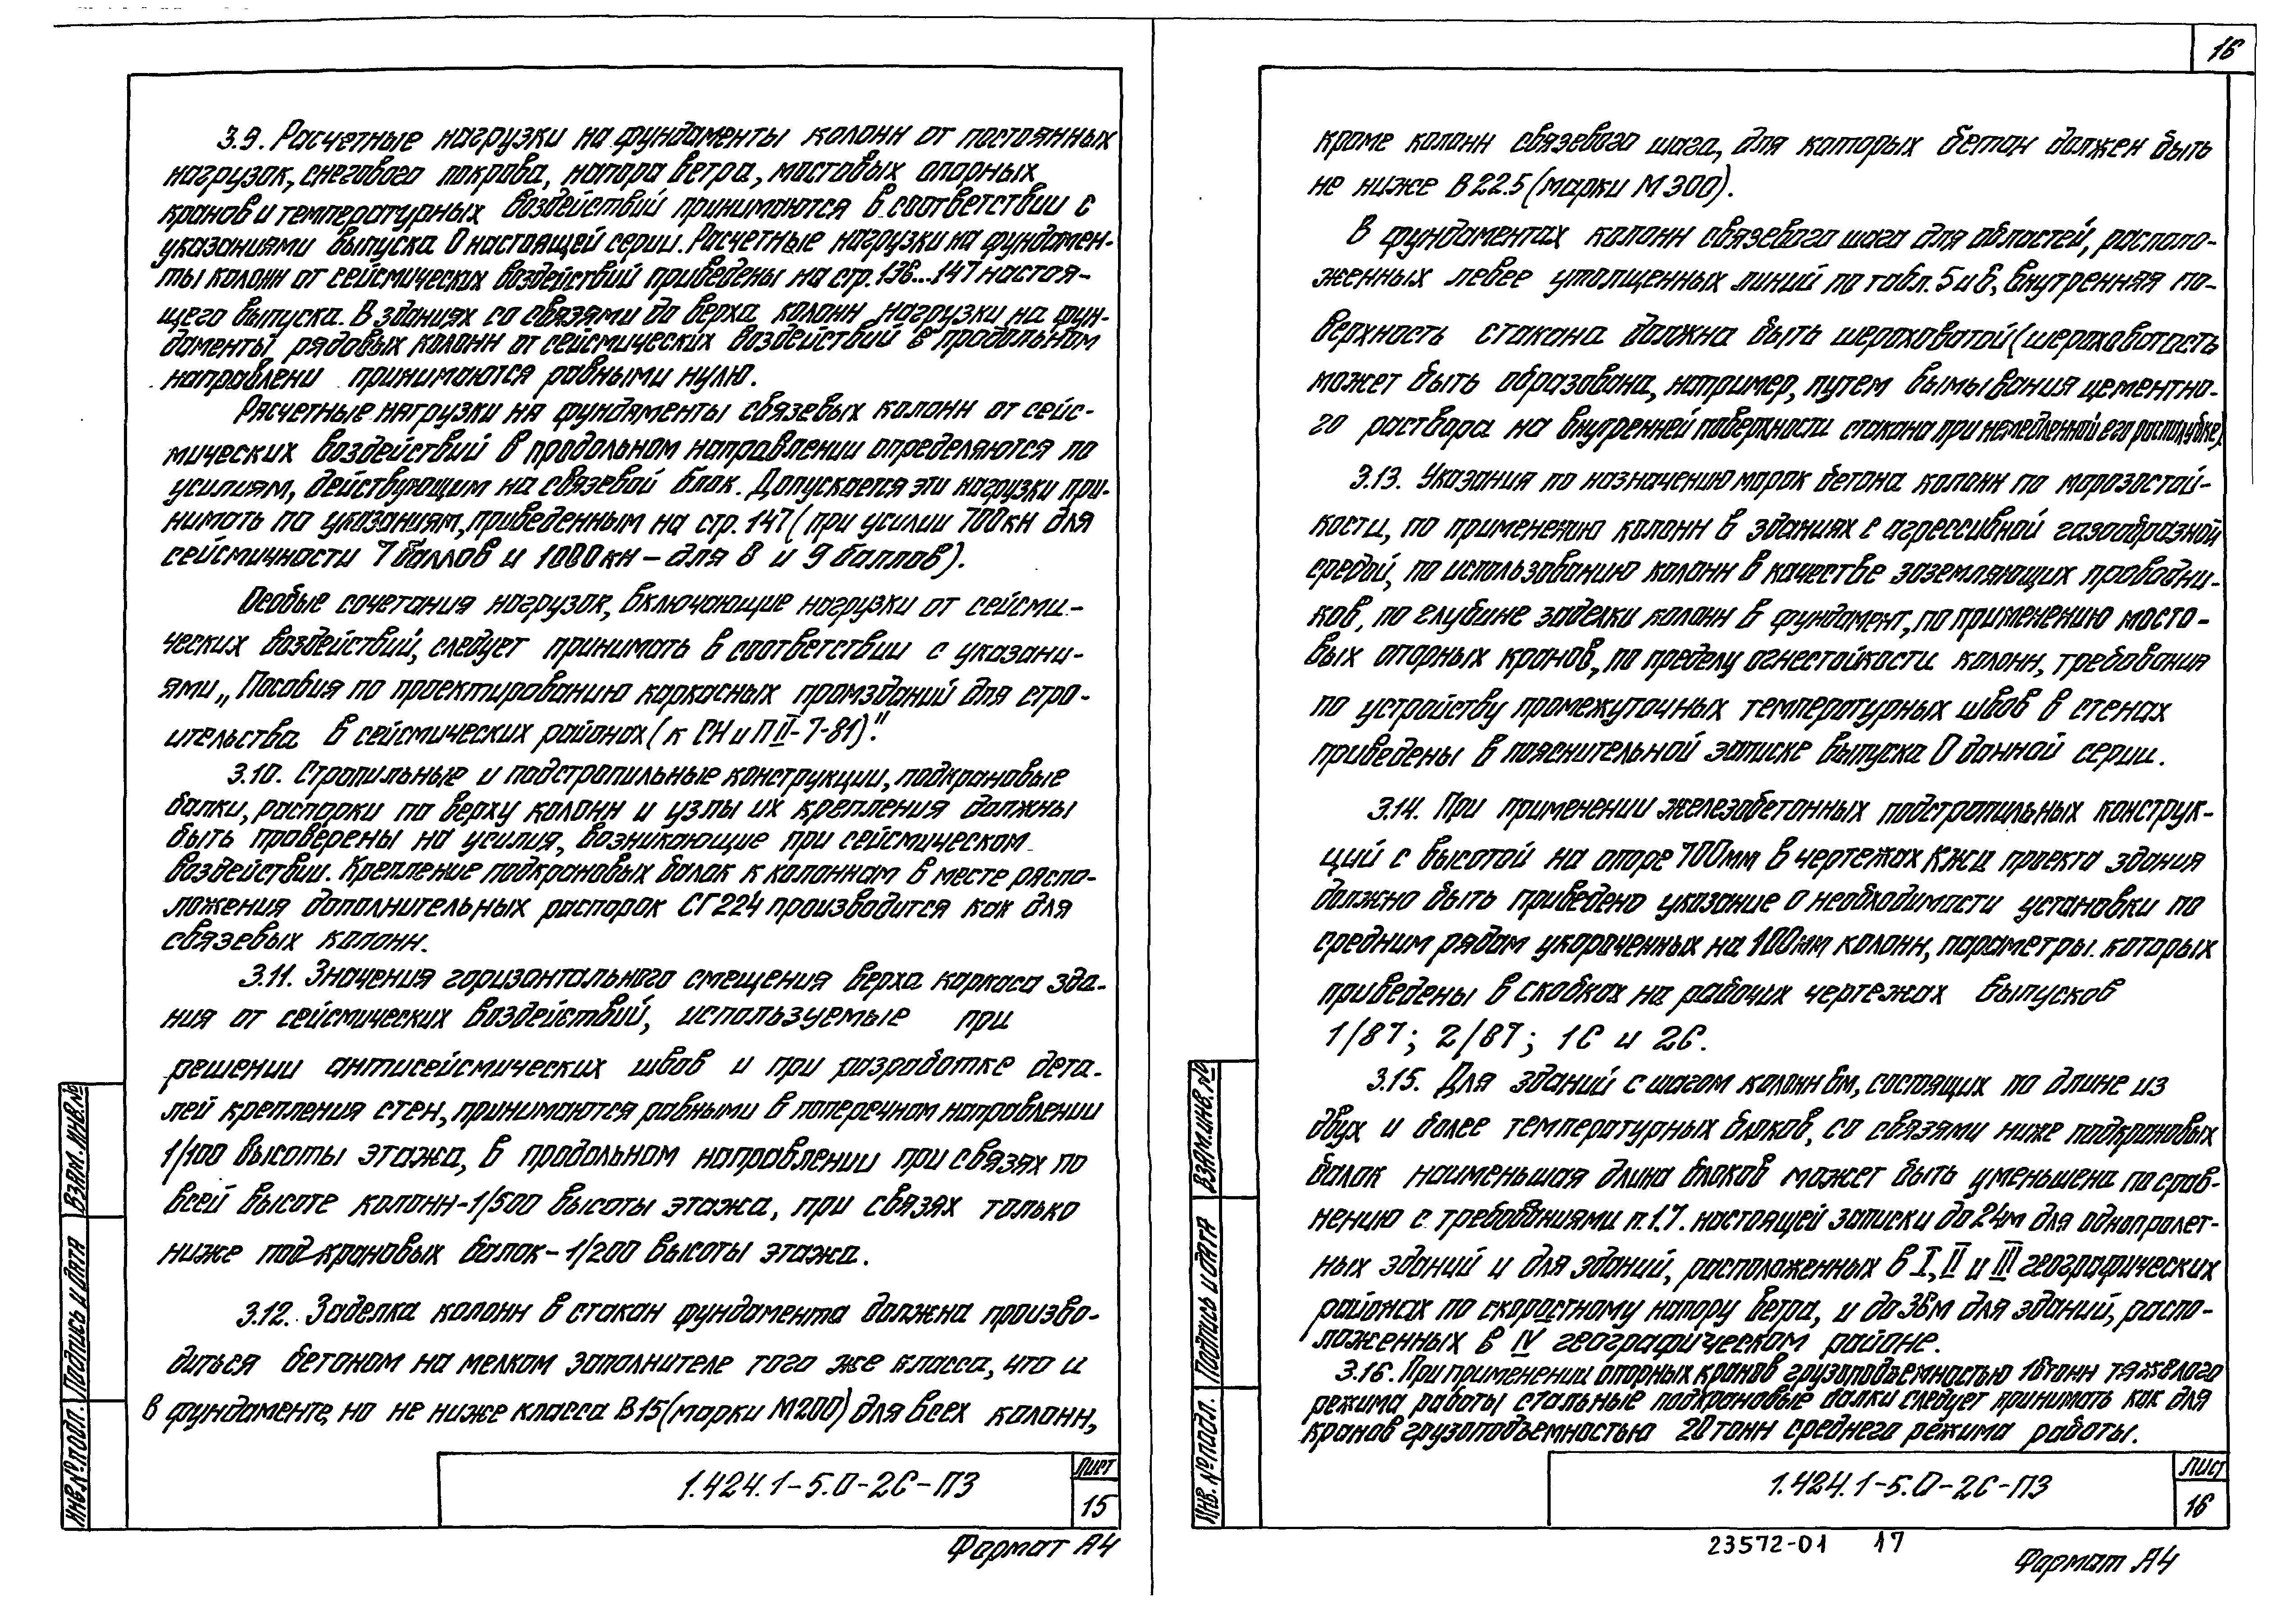 3.9. Расчетные нагрузки на фундаменты колонн от постоянных
нагрузок, снегового покрова, напора ветра, мостовых опорных
кранов и температурных воздействий принимаются в соответствии с
указаниями выпуска 0 настоящей серии. Расчетные нагрузки на фундамен-
ты колонн от сейсмических воздействий приведены на стр. 136...147 настоя-
щего выпуска. В зданиях со связями до верха колонн нагрузки на фун-
даменты рядовых колонн от сейсмических воздействий в продольном
направлени принимаются равными нулю.
Расчетные нагрузки на фундаменты связевых колонн от сейс-
мических воздействий в продольном направлении определяются по
усилиям, действующим на связевой блок. Допускается эти нагрузки при-
нимать по указаниям, приведенным на стр. 147 (при усилии 700кН для
сейсмичности 7 баллов и 1000кН – для 8 и 9 баллов).
Особые сочетания нагрузок, включающие нагрузки от сейсми-
ческих воздействий, следует принимать в соответствии с указани-
ями „Пособия по проектированию каркасных промзданий для стро-
ительства в сейсмических районах (к СНиП II-7-81)".
3.10. Стропильные и подстропильные конструкции, подкрановые
балки, распорки по верху колонн и узлы их крепления должны
быть проверены на усилия, возникающие при сейсмическом
воздействии. Крепление подкрановых балок к колоннам в месте распо-
ложения дополнительных распорок СГ224 производится как для
связевых колонн.
3.11. Значения горизонтального смещения верха каркаса зда-
ния от сейсмических воздействий, используемые при
решении антисейсмических швов и при разработке дета-
лей крепления стен, принимаются равными в поперечном направлении
1/100 высоты этажа, в продольном направлении при связях по
всей высоте колонн-1/500 высоты этажа, при связях только
ниже подкрановых балок – 1/200 высоты этажа.
3.12. Заделка колонн в стакан фундамента должна произво-
диться бетоном на мелком заполнителе того же класса, что и
в фундаменте, но не ниже класса В15 (марки М200) для всех колонн,
1.424.1-5.0-2С-ПЗ
Лист
15
Формат А4
Взам. инв. №
Подпись и дата
Инв. № подл.
16
кроме колонн связевого шага, для которых бетон должен быть
не ниже В 22.5 (марки М 300).
В фундаментах колонн связевого шага для областей, располо-
женных левее утолщенных линий по табл. 5 и 6, внутренняя по-
верхность стакана должна быть шероховатой (шероховатость
может быть образована, например, путем вымывания цементно-
го раствора на внутренней поверхности стакана при немедленной его распалубке)
3.13. Указания по назначению марок бетона колонн по морозостой-
кости, по применению колонн в зданиях с агрессивной газообразной
средой, по использованию колонн в качестве заземляющих проводни-
ков, по глубине заделки колонн в фундамент, по применению мосто-
вых опорных кранов, по пределу огнестойкости колонн, требования
по устройству промежуточных температурных швов в стенах
приведены в пояснительной записке выпуска 0 данной серии.
3.14. При применении железобетонных подстропильных конструк-
ций с высотой на опоре 700мм в чертежах КЖИ проекта здания
должно быть приведено указание о необходимости установки по
средним рядам укороченных на 100мм колонн, параметры. которых
приведены в скобках на рабочих чертежах выпусков
1/87; 2/87; 1С и 2С.
3.15. Для зданий с шагом колонн 6м, состоящих по длине из
двух и более температурных блоков, со связями ниже подкрановых
балок наименьшая длина блоков может быть уменьшена по срав-
нению с требованиями п.1.7. настоящей записки до 24м для однопролет-
ных зданий и для зданий, расположенных в I, II и III географических
районах по скоростному напору ветра, и до 36м для зданий, распо-
ложенных в IV географическом районе.
3.16. При применении опорных кранов грузоподъемностью 16тонн тяжелого
режима работы стальные подкрановые балки следует принимать как для
кранов грузоподъемностью 20тонн среднего режима работы.
1.424.1-5.0-2С-ПЗ
Лист
16
23572-01 17
Формат А4
Взам. инв. №
Подпись и дата
Инв. № подл.